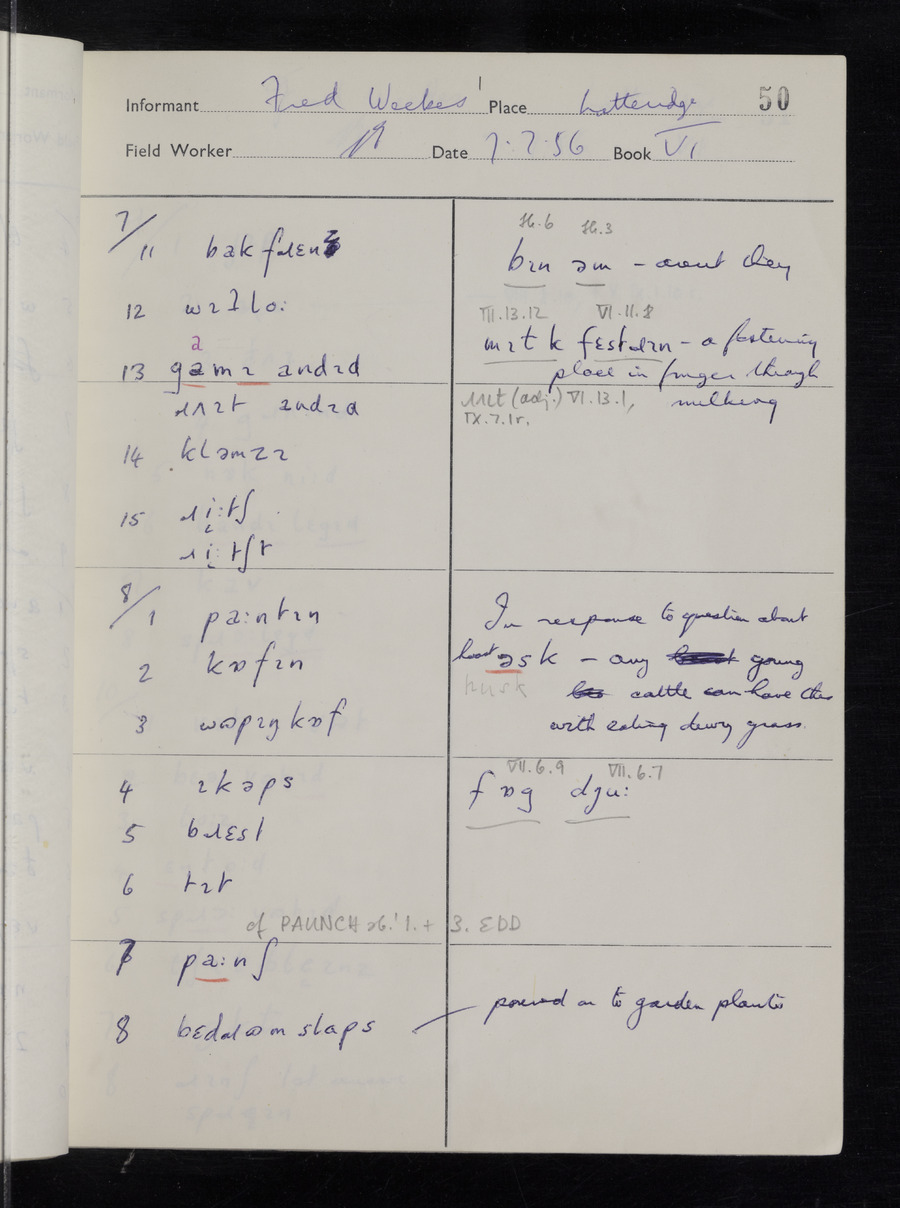 Informant Fred Weekes Place Latteridge 50
Field Worker Date 7.7.56 Book VI
7/
11 bak fɹɛn
12 wɪʔlo:
a
13 gamɪ andɪd
andɪd
14
15 ɹi:tʃ
ɹi:tʃt
8/
1 pa:ntɪn
2 kɒfɪn
3 wɒpɪŋ kɒf
4 ɪkəps
5 bɹɛst
6 tɪt
cf PAUNCH sb.¹ 1. + 3. EDD
7 pa:nʃ
8 bɛdɹʊm slaps
IX.6 IX.3
bɪn əm – aren't they
VII.13.12 VI.11.8
mɪtk fɛstəɹɪn – a festering
place in finger through
milking
(adj.) VI.13.1,
IX.7.1r.
In response to question about
hoost əsk – any young
husk
cattle can have this
with eating dewy grass.
VII.6.9 VII.6.7
fɒg dʒu:
poured on to garden plants